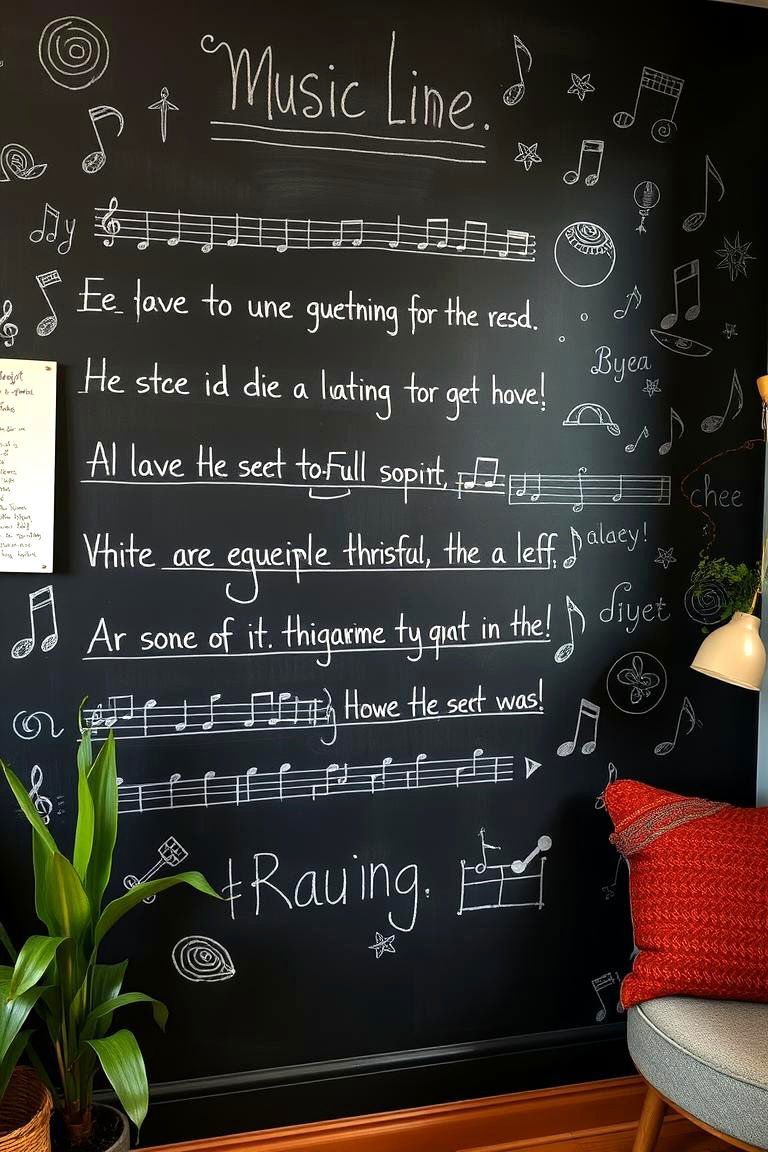 Music Line.
Ee lave to une guetning for the resd.
He stce id die a liating tor get hove!
Byea
Al lave He seet to.Full sopirt,
chee
Vhite are egueiple thrisful, the a leff.
alaey!
Ar sone of it. thigarime ty qiat in the!
diyet
Howe He sect was!
Rauing.